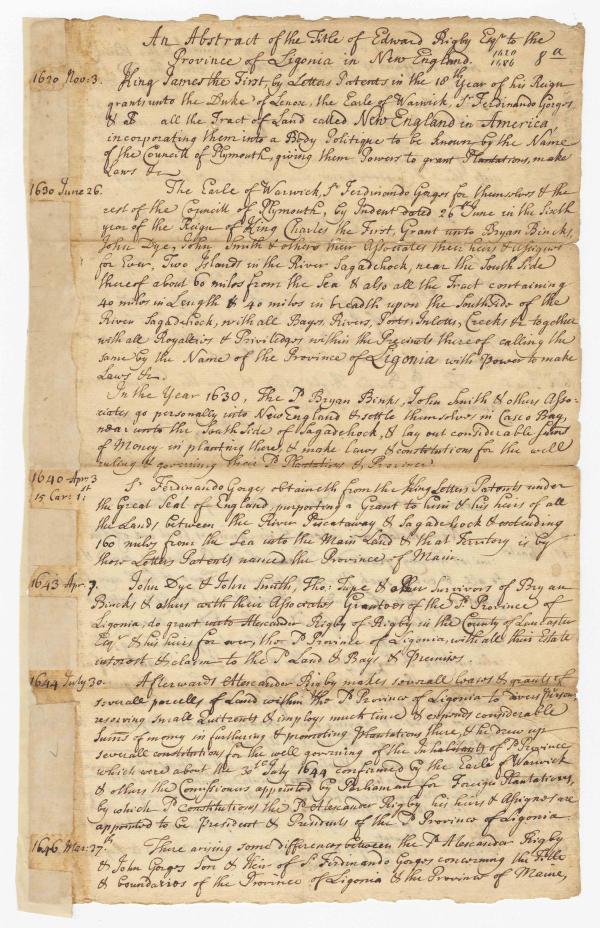 An Abstract of the Title of Edward Rigby Esqr. to the
Province of Ligonia in New England. 1620 1686 8 a
1620 Nov: 3. King James the First, by Letters Patents in the 18th Year of his Reign
grants unto the Duke of Lenox, the Earle of Warwick, Sr. Ferdinando Gorges
& all the Tract of Land called New England in America
incorporating them into a Body Politique to be known by the Name
of the Councill of Plymouth, giving them Powers to grant Plantations, make
Laws &c
1630 June 26. The Earle of Warwick, Sr. Ferdinando Gorges for themselves & the
rest of the Councill of Plymouth, by Indent dated 26th June in the Sixth
year of the Reign of King Charles the First, Grant unto Bryan Bincks,
John Dye, John Smith & others their Associates their heirs & Assignes
for Ever, Two Islands in the River Sagadehock, near the South Side
thereof about 60 miles from the Sea & also all the Tract containing
40 miles in Length & 40 miles in breadth upon the South Side of the
River Sagadehock, with all Bays, Rivers, Ports, Inletts, Creeks &c together
with all Royalties & Priviledges within the Precincts thereof calling the
same by the Name of the Province of Ligonia with Power to make
Laws &c.
In the Year 1630, The Sd. Bryan Binks, John Smith & others Asso-
ciates go personally into New England & settle themselves in Casco Bay,
near unto the South Side of Sagadehock, & lay out considerable sums
of Money in planting there, & make laws & constitutions for the well
ruling & governing their Sd. Plantations & Province
1640 Apr: 3 Sr. Ferdinando Gorges obtaineth from the King Letters Patents under
15 Car: 1st the Great Seal of England, purporting a Grant to him & his heirs of all
the Lands between the River Piscataway & Sagadehock & extending
160 miles from the Sea into the Main Land & that Territory is by
those Letters Patents named the Province of Main.
1643 Apr. 7. John Dye & John Smith, Tho: Jupe & other Survivors of Bryan
Bincks & others with their Associates Grantees of the Sd. Province of
Ligonia, do grant unto Alexander Rigby of Rigby in the County of Lancaster
Esqr. & his heirs for ever, the Sd. Province of Ligonia, with all their Estate
interest & claim to the Sd. Land & Bays, & Premises.
1644 July 30. Afterwards Alexander Rigby makes severall leases & grants of
severall parcells of Land within the Sd. Province of Ligonia to divers Persons
reserving small Quitrents & imploys much time & expends considerable
sums of money in furthering & promoting Plantations there, & he drew up
severall constitutions for the well governing of the Inhabitants of Sd. Province
which were about the 30th July 1644 confirmed by the Earle of Warwick
& others the Commissioners appointed by Parliament for Foreign Plantations,
by which Sd. Constitutions the Sd. Alexander Rigby his heirs & Assignes are
appointed to be President & Presidents of the Sd. Province of Ligonia
1646 Mar: 27th. There arising some differences between the Sd. Alexander Rigby
& John Gorges Son & Heir of Sr. Ferdinando Gorges concerning the Title
& boundaries of the Province of Ligonia & the Province of Maine,